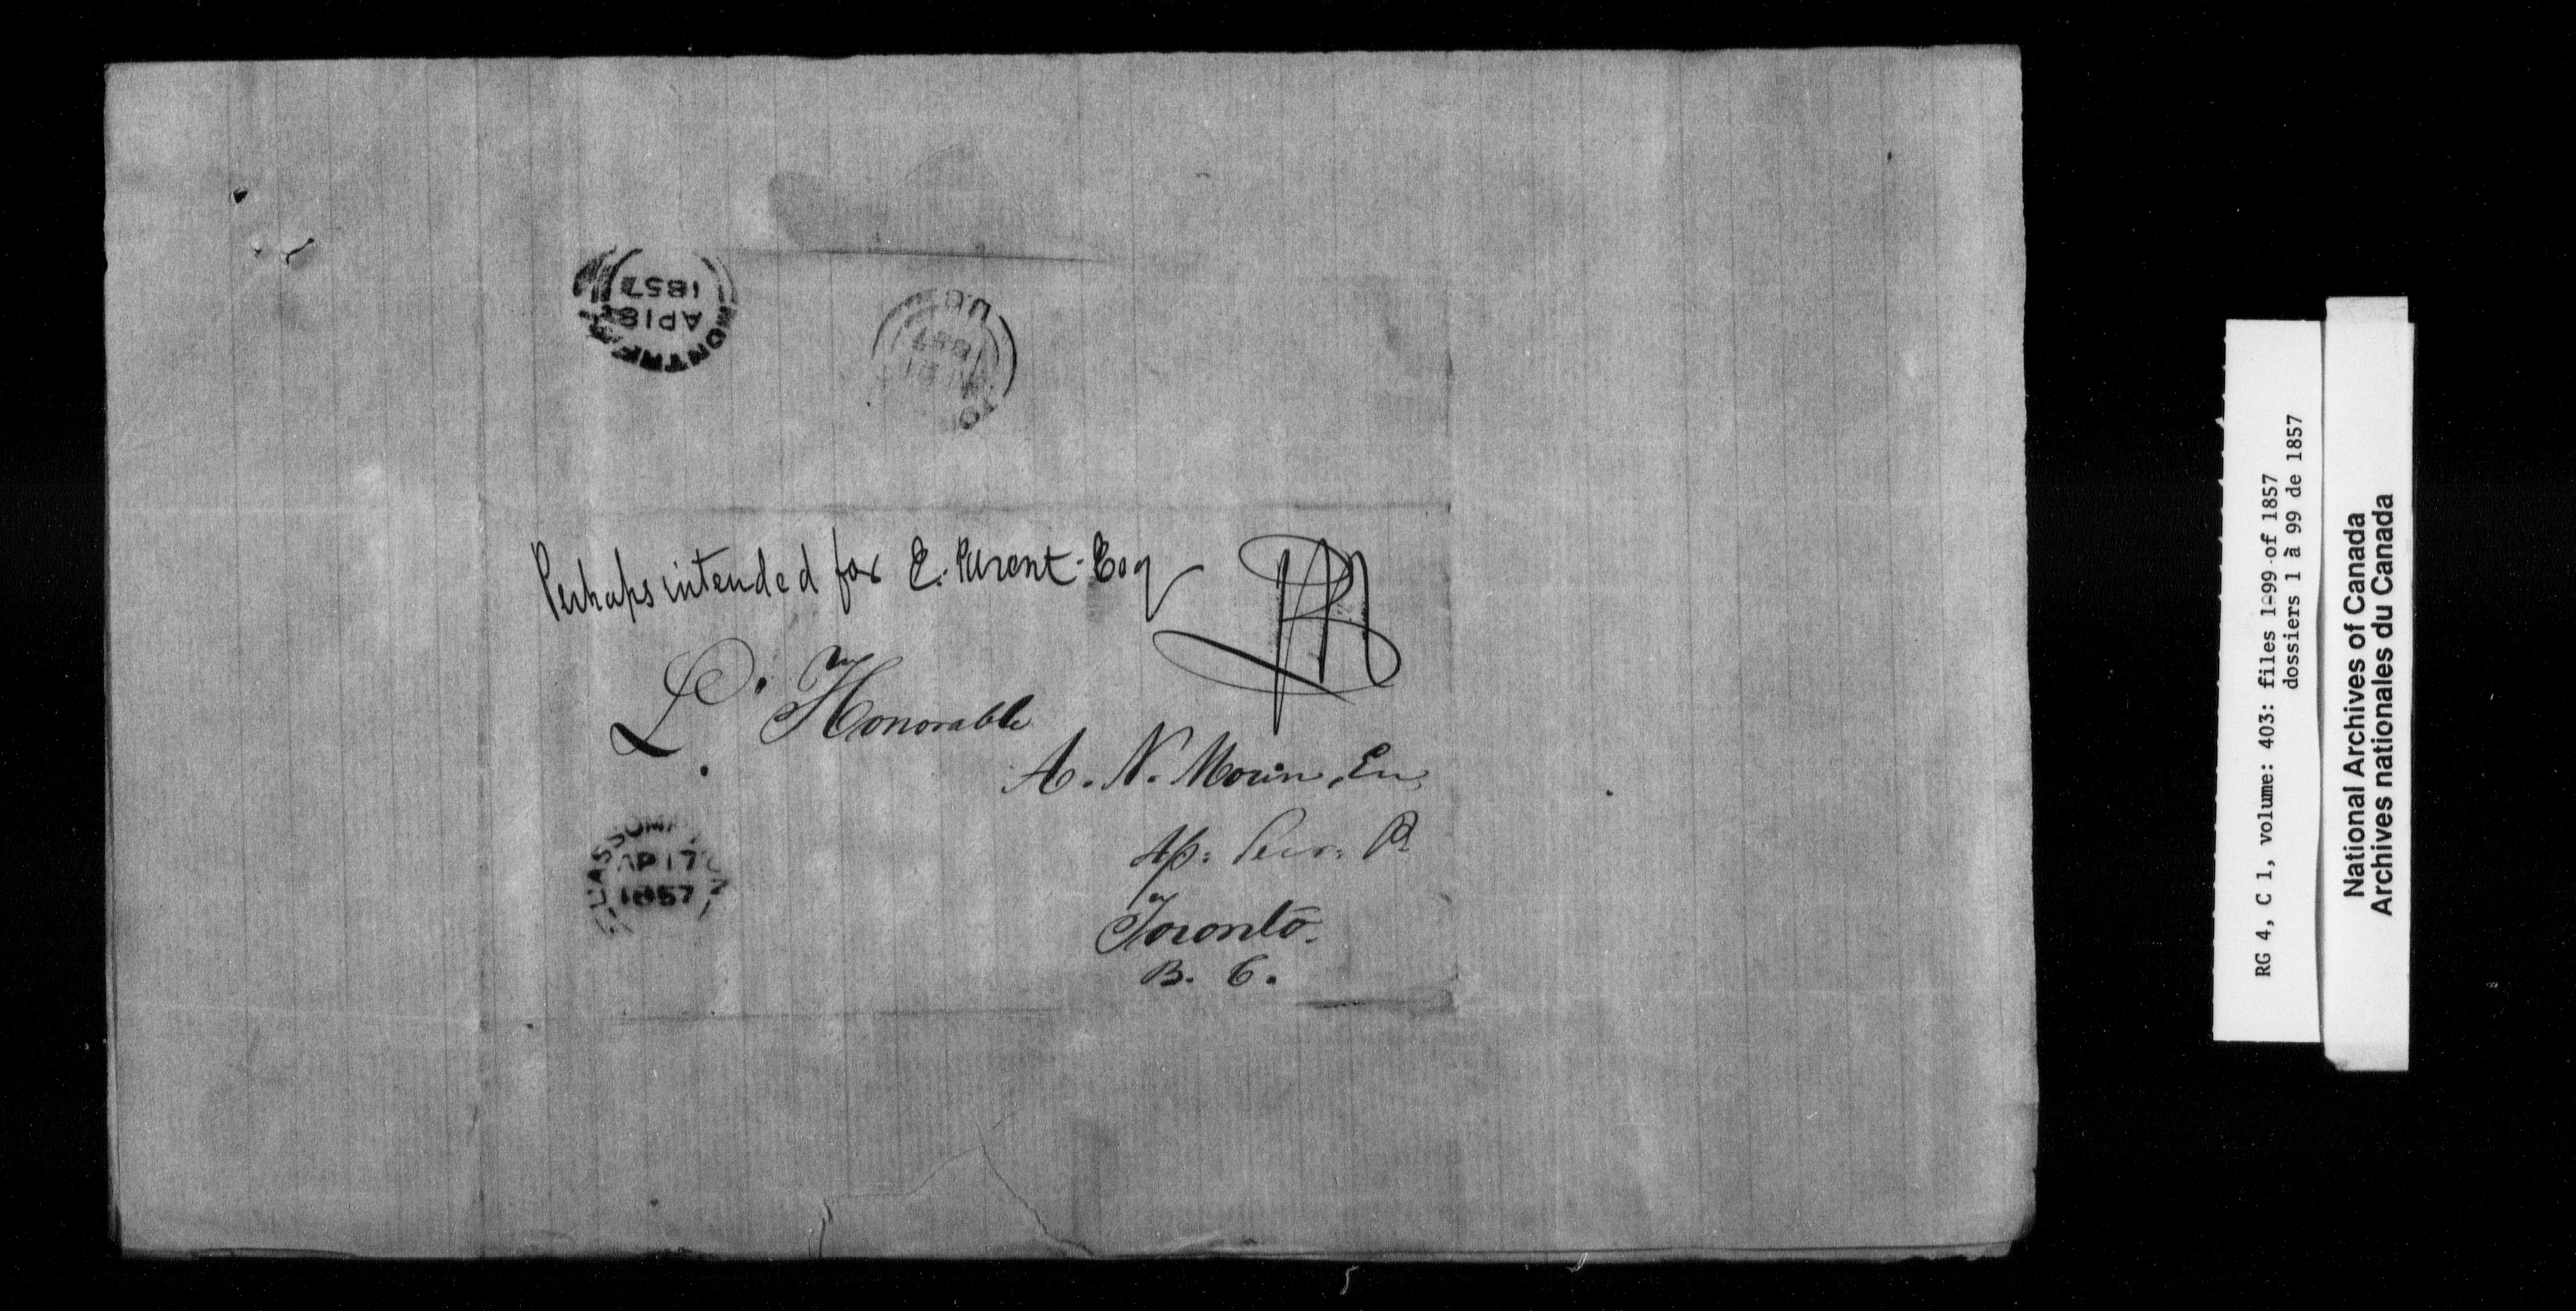 MONTREAL
AP 18
1857
U.C.
Perhaps intended for E. Parent Esq
L'Honorable
A. N. Morin, Eu,
Ap: Secr: P.
Toronto.
B. C.
L'ASSOMPTION
AP 17
1857
RG 4, C 1, volume: 403: files 1-99 of 1857
dossiers 1 à 99 de 1857
National Archives of Canada
Archives nationales du Canada